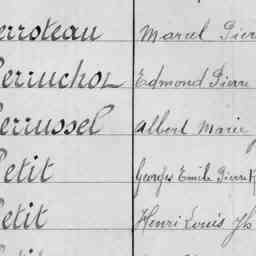 erroteau Marcel Pier
Perruchot Edmond Pierre
Perrussel Albert Marie J
Petit Georges Emile Pierre R
Petit Henri Louis Jh